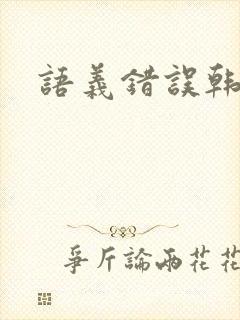 語義錯誤韓
爭斤論兩花花